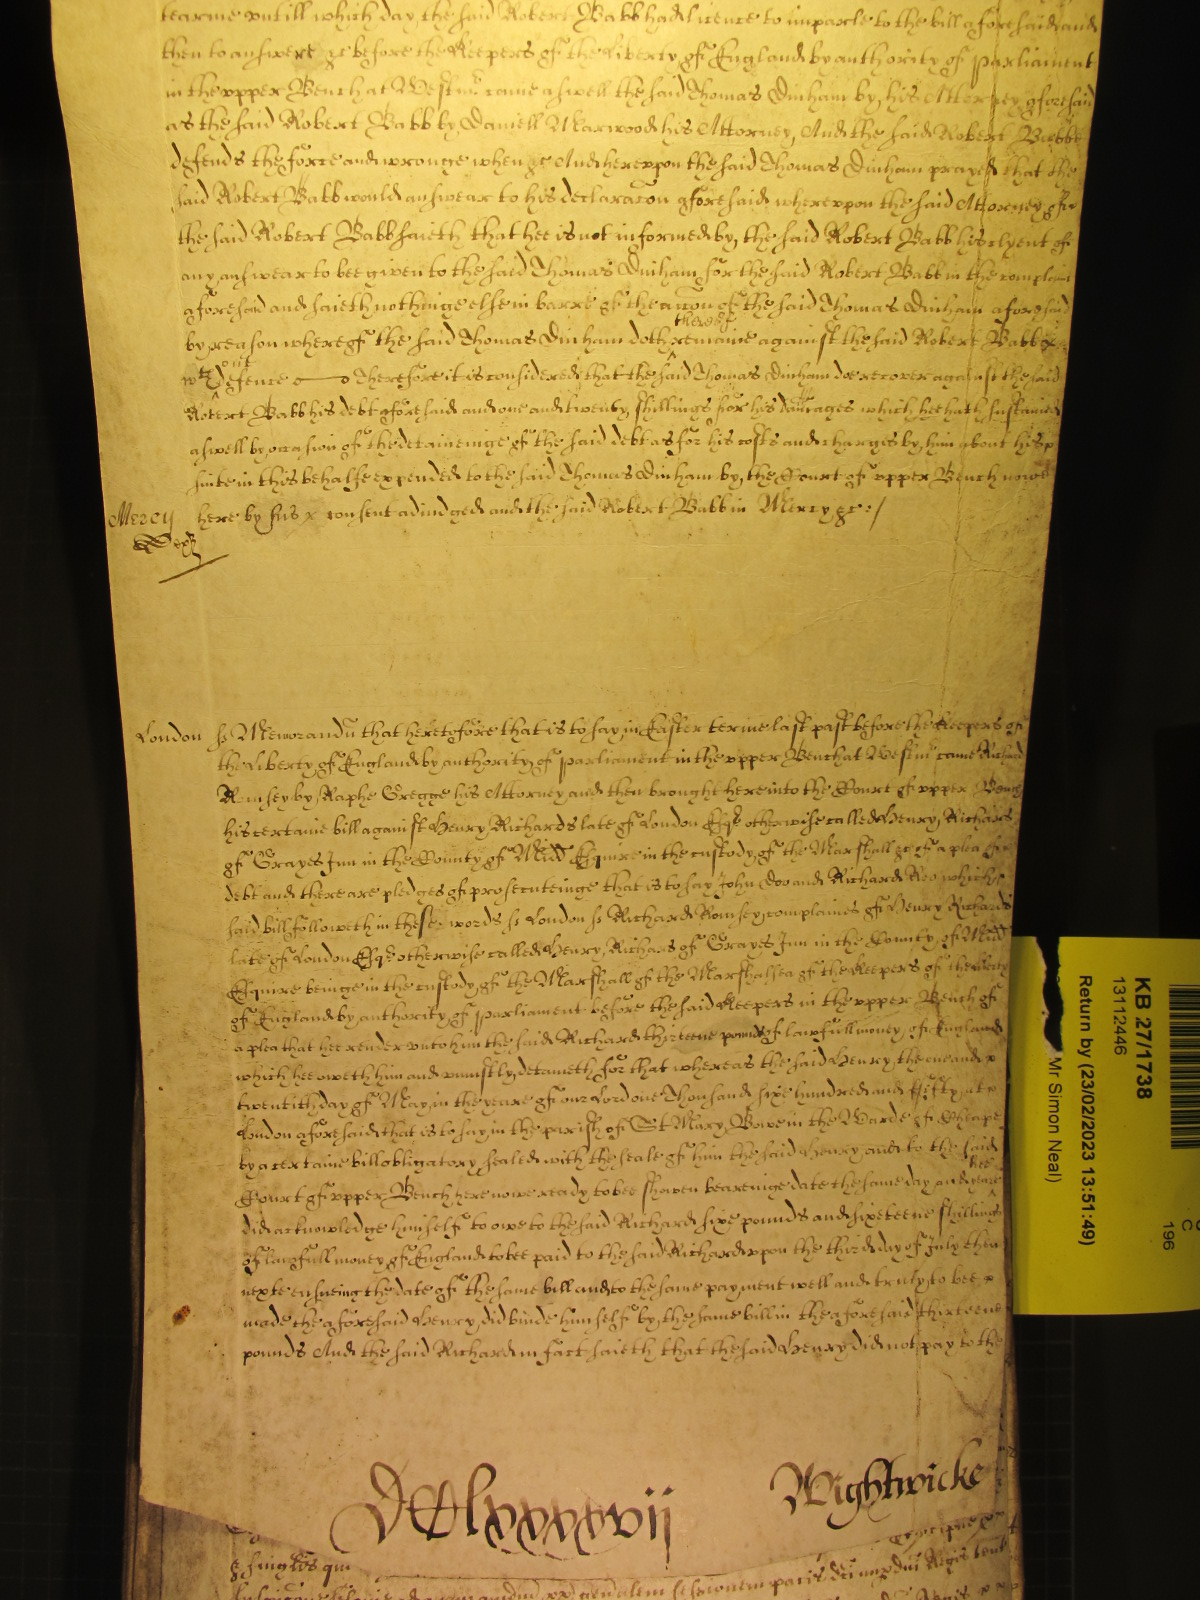 tearme vntill which day the said Robert Babb had licence to imparle to the bill aforesaid and
then to answere &c before the Keepers of the Liberty of England by authority of Parliament
in the vpper Bench at Westmr came aswell the said Thomas Dinham by his Attorney aforesaid
as the said Robert Babb by Daniell Marwood his Attorney, And the said Robert Babbe
defends the force and wronge when &c And herevpon the said Thomas Dinham prayed that the
said Robert Babb would answear to his declaracon aforesaid wherevpon the said Attorney of
the said Robert Babb saieth that hee is not informed by the said Robert Babb his clyent of
any answear to bee given to the said Thomas Dinham for the said Robert Babb in the complaint
aforesaid and saieth nothinge else in barre of the accon of the said Thomas Dinham aforesaid
thereof
by reason whereof the said Thomas Dinham doth remaine against the said Robert Babb x
out
wth defence Therefore it is considered that the said Thomas Dinham doe recover against the said
Robert Babb his debt aforesaid and one and twenty shillings for his damages which hee hath susteined
aswell by occasion of the deteineinge of the said debt as for his costs and charges by him about his x
suite in this behalfe expended to the said Thomas Dinham by the Court of vpper Bench nowe
Mercy here by his x consent adiudged and the said Robert Babb in Mercy &c:/
London ss Memorandu that heretofore that is to say in Easter terme last past before the Keepers of
the Liberty of England by authority of Parliament in the vpper Bench at Westmr came Richard
Romsey by Raphe Gregge his Attorney and then brought here into the Court of vpper Bench
his certaine bill against Henry Richards late of London Esqr otherwise called Henry Richards
of Grayes Inn in the County of Midd Esquire in the custody of the Marshall &c of a plea of
debt and there are pledges of prosecuteinge that is to say John Doo and Richard Roo which
said bill followeth in these words ss London ss Richard Romsey complaines of Henry Richards
late of London Esqr otherwise called Henry Richards of Grayes Inn in the County of Midd
Esquire beinge in the custody of the Marshall of the Marshalsea of the Keepers of the liberty
of England by authority of Parliament before the said Keepers in the vpper Bench of
a plea that hee render vnto him the said Richard thirteene pounds of lawfull money of England
which hee oweth him and vniustly deteineth for that whereas the said Henry the one and x
twentith day of May in the yeare of our Lord one Thousand sixe hundred and fifty at x
London aforesaid that is to say in the parish of St Mary Bowe in the Warde of Cheape
by a certaine bill obligatory sealed with the seale of him the said Henry and to the said
hee
Court of vpper Bench here nowe ready to bee shewen beareinge date the same day and yeare
did acknowledge himself to owe to the said Richard sixe pounds and sixeteene shillings
of lawfull money of England to bee paid to the said Richard vpon the third day of July then
nexte ensueing the date of the same bill and to the same payment well and truly to bee x
made the aforesaid Henry did binde himself by the same bill in the aforesaid thirteene
pounds And the said Richard in fact saieth that the said Henry did not pay to the
Wightwicke
KB 27/1738
13112446
Return by (23/02/2023 13:51:49)
Mr Simon Neal)
196